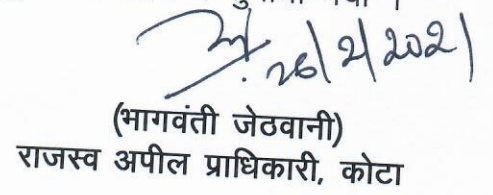 26/2/2021
(भागवंती जेठवानी)
राजस्व अपील प्राधिकारी, कोटा